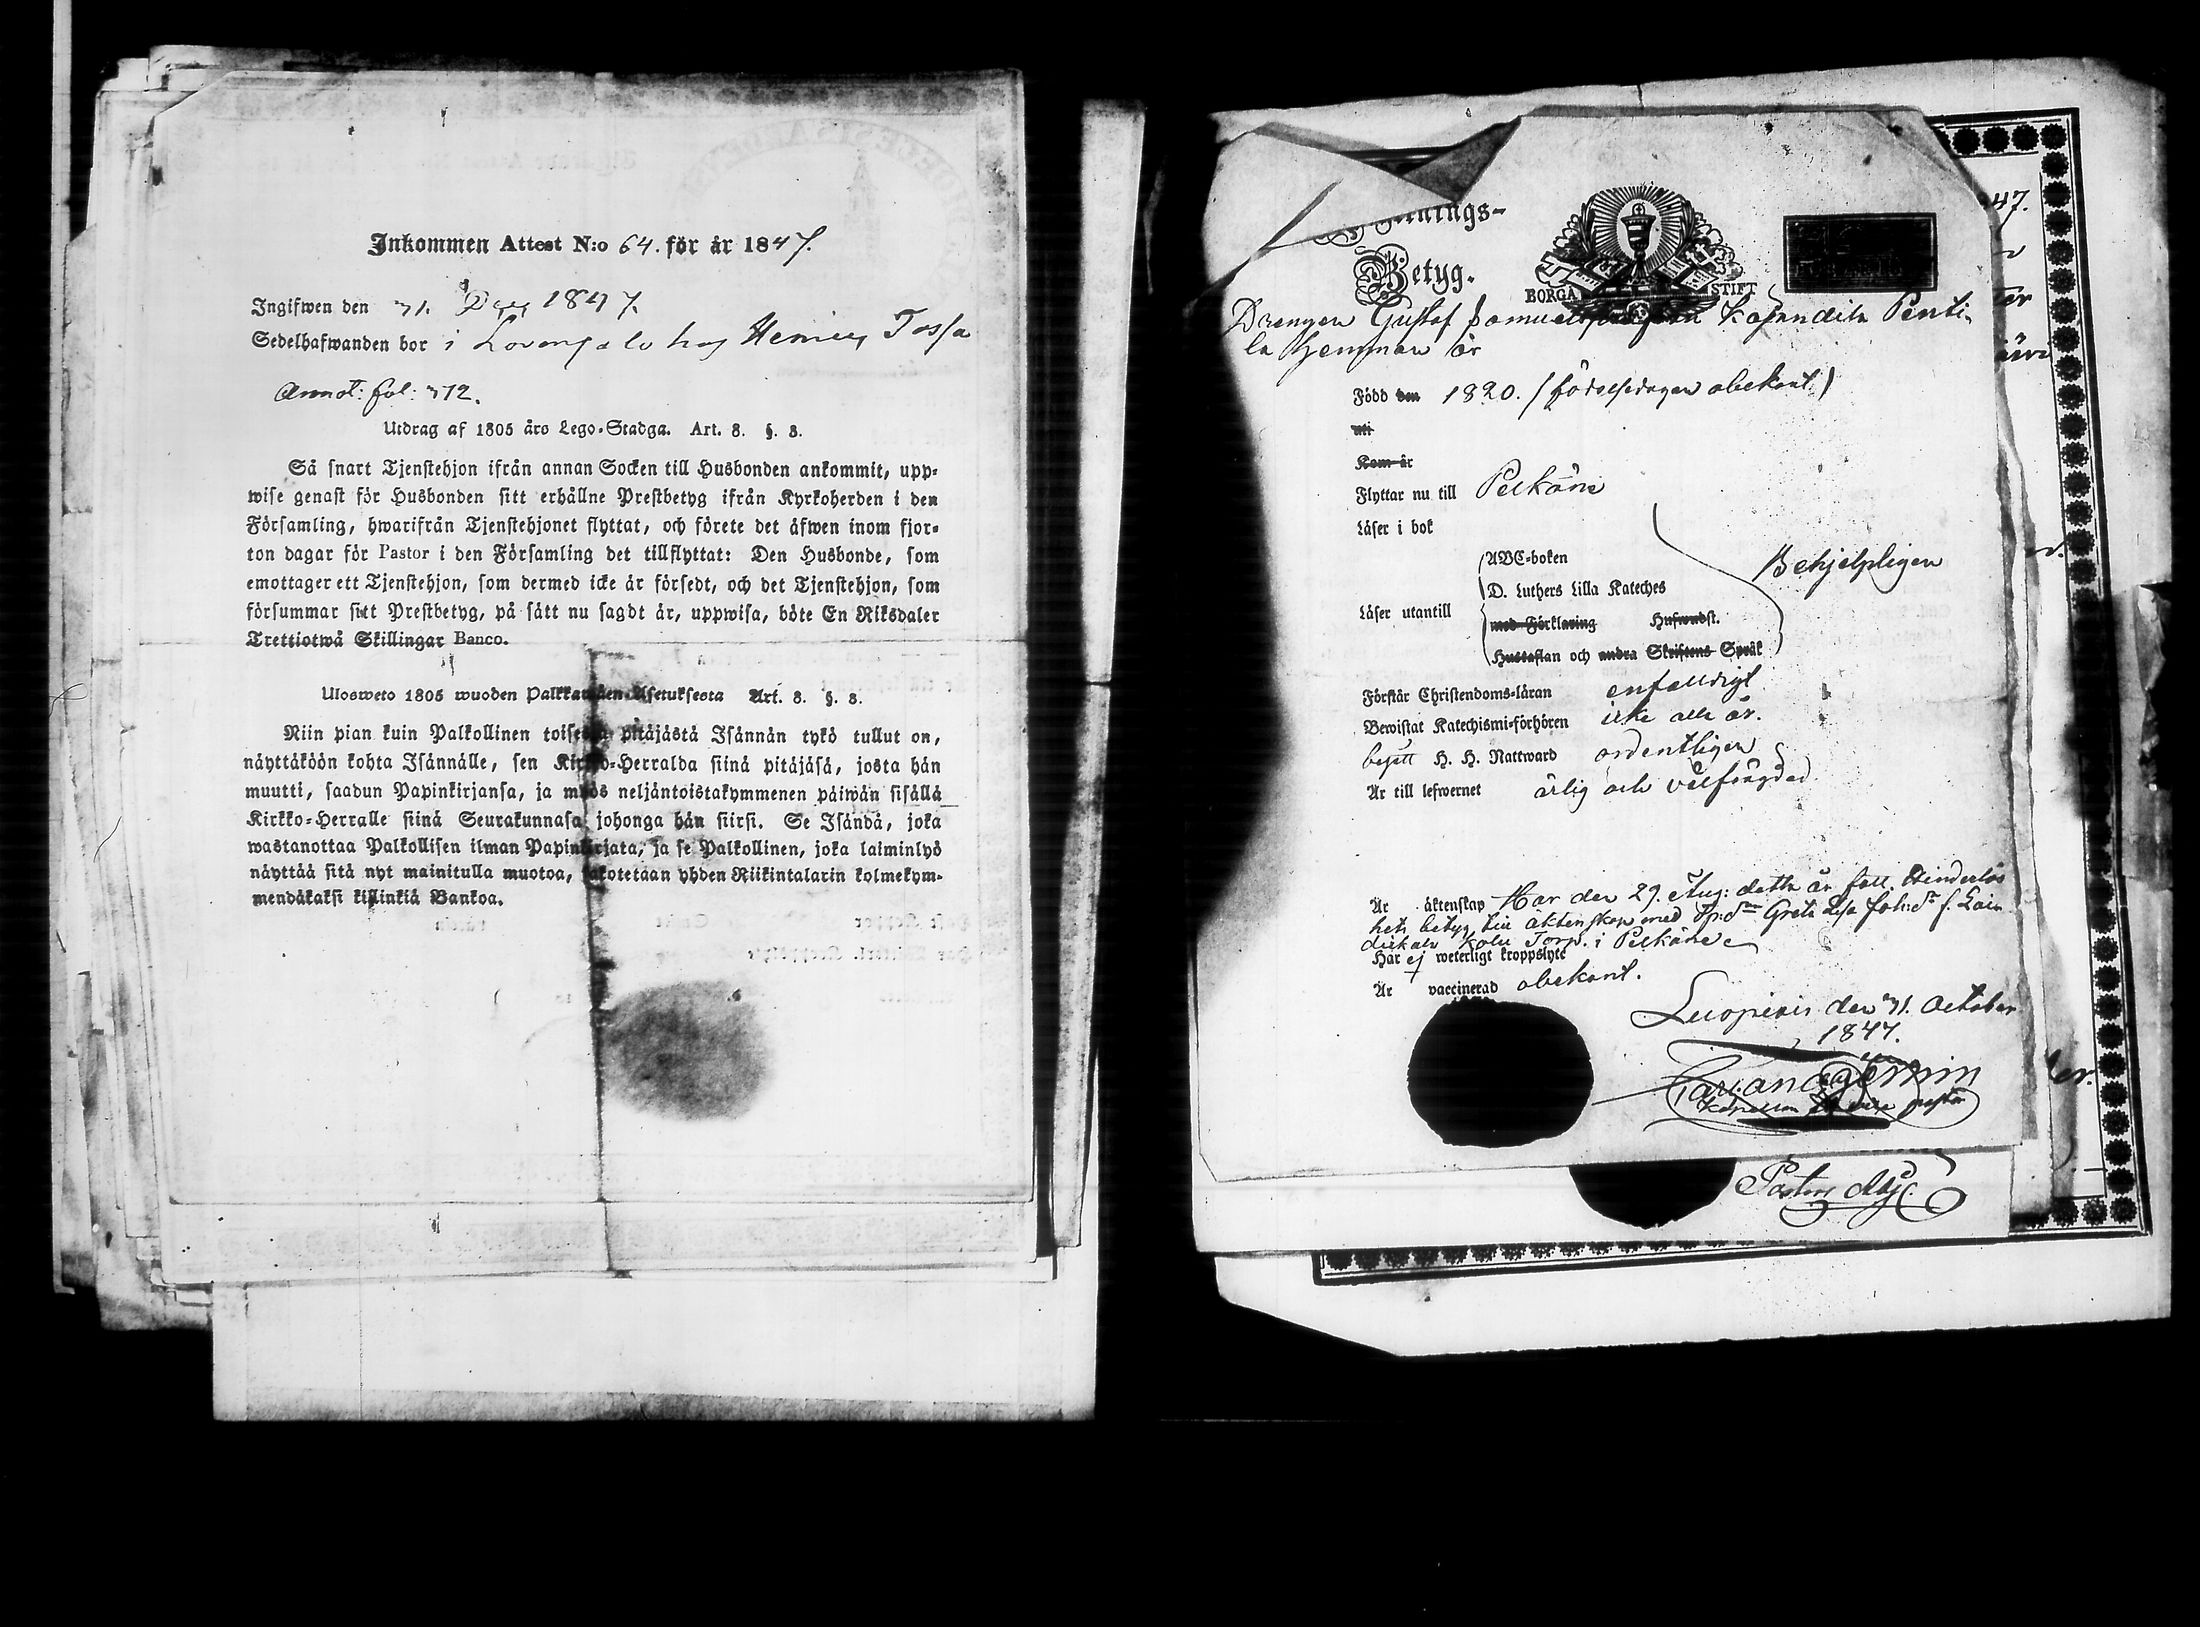 Inkommen Attest N:o 64. för år 1847.
Ingifwen den 31. Dec 1847.
Sedelhafwanden bor i hos Tossa
Annot: fol: 312.
Utdrag af 1805 års Lego-Stadga. Art. 8. §. 3.
Så snart Tjenstehjon ifrån annan Socken till Husbonden ankommit, upp-
wise genast för Husbonden sitt erhållne Prestbetyg ifrån Kyrkoherden i den
Församling, hwarifrån Tjenstehjonet flyttat, och förete det äfwen inom fjor-
ton dagar för Pastor i den Församling det tillflyttat: Den Husbonde, som
emottager ett Tjenstehjon, som dermed icke är försedt, och det Tjenstehjon, som
försummar sitt Prestbetyg, på sätt nu sagdt är, uppwisa, böte En Riksdaler
Trettiotwå Skillingar Banco.
Ulosweto 1805 wuoden Palkkawäen-Asetuksesta Art. 8. §. 3.
Niin pian kuin Palkollinen toisesta pitäjästä Isännän tykö tullut on,
näyttäköön kohta Isännälle, sen Kirkko-Herralda siinä pitäjäsä, josta hän
muutti, saadun Papinkirjansa, ja myös neljäntoistakymmenen päiwän sisällä
Kirkko-Herralle siinä Seurakunnasa johonga hän siirsi. Se Isändä, joka
wastanottaa Palkollisen ilman Papinkirjata, ja se Palkollinen, joka laiminlyö
näyttää sitä nyt mainitulla muotoa, sakotetaan yhden Riikintalarin kolmekym-
mendäkaksi killinkiä Bankoa.
Betyg.
BORGÅ STIFT
Drengen Gustaf Penti-
la hemman är
Född den 1820. (födelsedagen obekant)
uti
Kom år
Flyttar nu till Pelkäne
Läser i bok
Läser utantill
ABC-boken
D. Luthers Lilla Kateches
med Förklaring Hufwudst.
Hustaflan och andra Skriftens Språk
Behjelpligen
Förstår Christendoms-läran enfaldigt
Bewistat Katechismi-förhören icke alla år.
begått H. H. Nattward ordentligen
Är till lefwernet ärlig och välfrägdad
Är äktenskap Har den 29. Aug: detta år fått Hinderlös
hets betyg till äktenskap med Greta Lisa
Torp. i Pelkäne
Har ej weterligt kroppslyte
Är vaccinerad obekant.
Luopiois den 31. October
1847.
Pastors Adj.